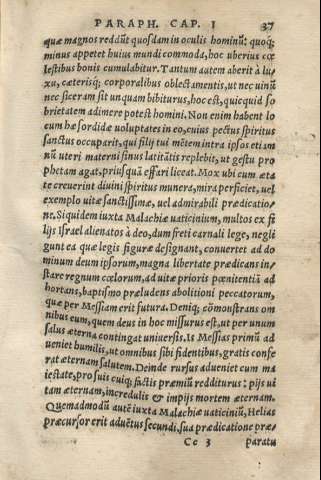 PARAPH. CAP. I 37
quæ magnos reddũt quosdam in oculis hominũ: quoq;
minus appetet huius mundi commoda, hoc uberius cœ
lestibus bonis cumulabitur. Tantum autem aberit à lu-
xu, cæterisq; corporalibus oblectamentis, ut nec uinũ
nec siceram sit unquam bibiturus, hoc est, quicquid so
brietatem adimere potest homini. Non enim habent lo
cum hæ sordidæ uoluptates in eo, cuius pectus spiritus
sanctus occuparit, qui filij tui mẽtem intra ipsos etiam
nũ uteri materni sinus latitãtis replebit, ut gestu pro
phetam agat, priusquã effari liceat. Mox ubi cum æta
te creuerint diuini spiritus munera, mira perficiet, uel
exemplo uitæ sanctissimæ, uel admirabili prædicatio-
ne. Siquidem iuxta Malachiæ uaticinium, multos ex fi
lijs Israel alienatos à deo, dum freti carnali lege, negli
gunt ea quæ legis figuræ designant, conuertet ad do
minum deum ipsorum, magna libertate prædicans in-
stare regnum cœlorum, ad uitæ prioris pœnitentiã ad
hortans, baptismo præludens abolitioni peccatorum,
quæ per Messiam erit futura. Deniq; cõmonstrans om
nibus eum, quem deus in hoc missurus est, ut per unum
salus æterna contingat uniuersis. Is Messias primũ ad
ueniet humilis, ut omnibus sibi fidentibus, gratis confe
rat æternam salutem. Deinde rursus adueniet cum ma
iestate, pro suis cuiq; factis præmiũ redditurus: pijs ui
tam æternam, incredulis & impijs mortem æternam.
Quemadmodũ autẽ iuxta Malachiæ uaticiniũ, Helias
præcursor erit aduẽtus secundi, sua prædicatione præ-
Cc 3 paratu